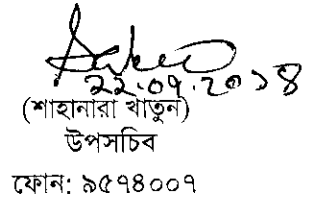 ২২.০৭.২০১৪
(শাহানারা খাতুন)
উপসচিব
ফোন: ৯৫৭৪০০৭